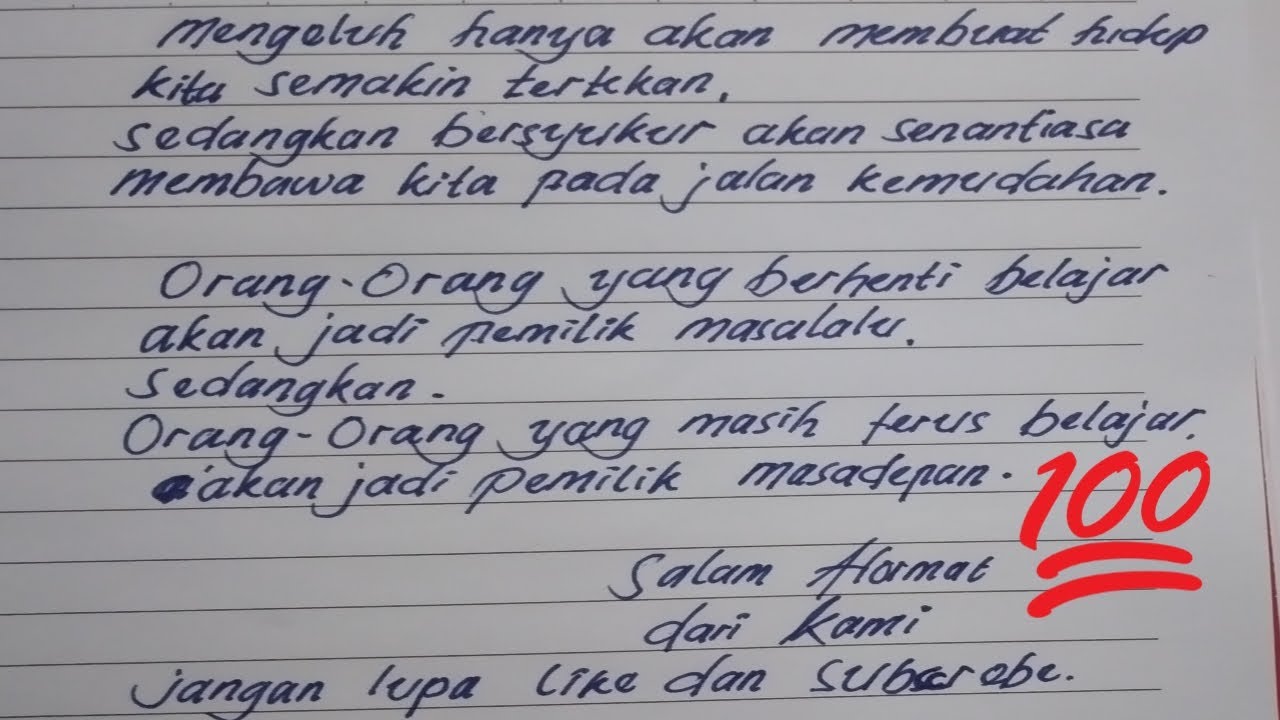 Mengeluh hanya akan membuat hidup
kita semakin tertekan.
sedangkan bersyukur akan senantiasa
membawa kita pada jalan kemudahan.
Orang-Orang yang berhenti belajar
akan jadi pemilik masalalu.
Sedangkan.
Orang-Orang yang masih terus belajar.
akan jadi pemilik masadepan.
100
Salam Hormat
dari kami
jangan lupa like dan subscrebe.